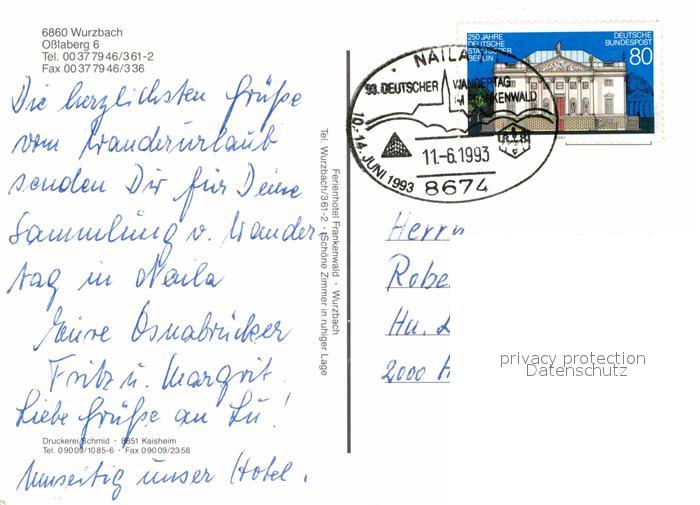 6860 Wurzbach
Oßlaberg 6
Tel. 00 37 79 46/361-2
Fax 00 37 79 46/336
Die herzlichsten Grüße
vom Wanderurlaub
senden Dir für Deine
Sammlung v. Wander-
tag in Naila
Eure Osnabrücker
Fritz u. Margrit.
Liebe Grüße an Lu!
Druckerei Schmid · 8851 Kaisheim
Tel. 09009/1085-6 · Fax 09009/2358
Umseitig unser Hotel.
Ferienhotel Frankenwald · Wurzbach
Tel. Wurzbach/361-2 · (Schöne Zimmer in ruhiger Lage
NAILA
93. DEUTSCHER WANDERTAG
IM FRANKENWALD
10.-14. JUNI 1993
11.-6.1993
8674
250 JAHRE
DEUTSCHE
STAATSOPER
BERLIN
DEUTSCHE
BUNDESPOST
80
Herrn
Robe
Hu.
2000 H
privacy protection
Datenschutz